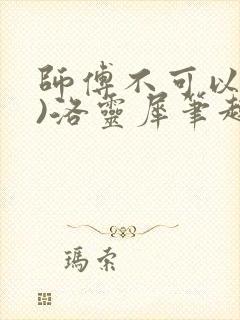 師傅不可以
)洛靈犀筆趣
瑪索